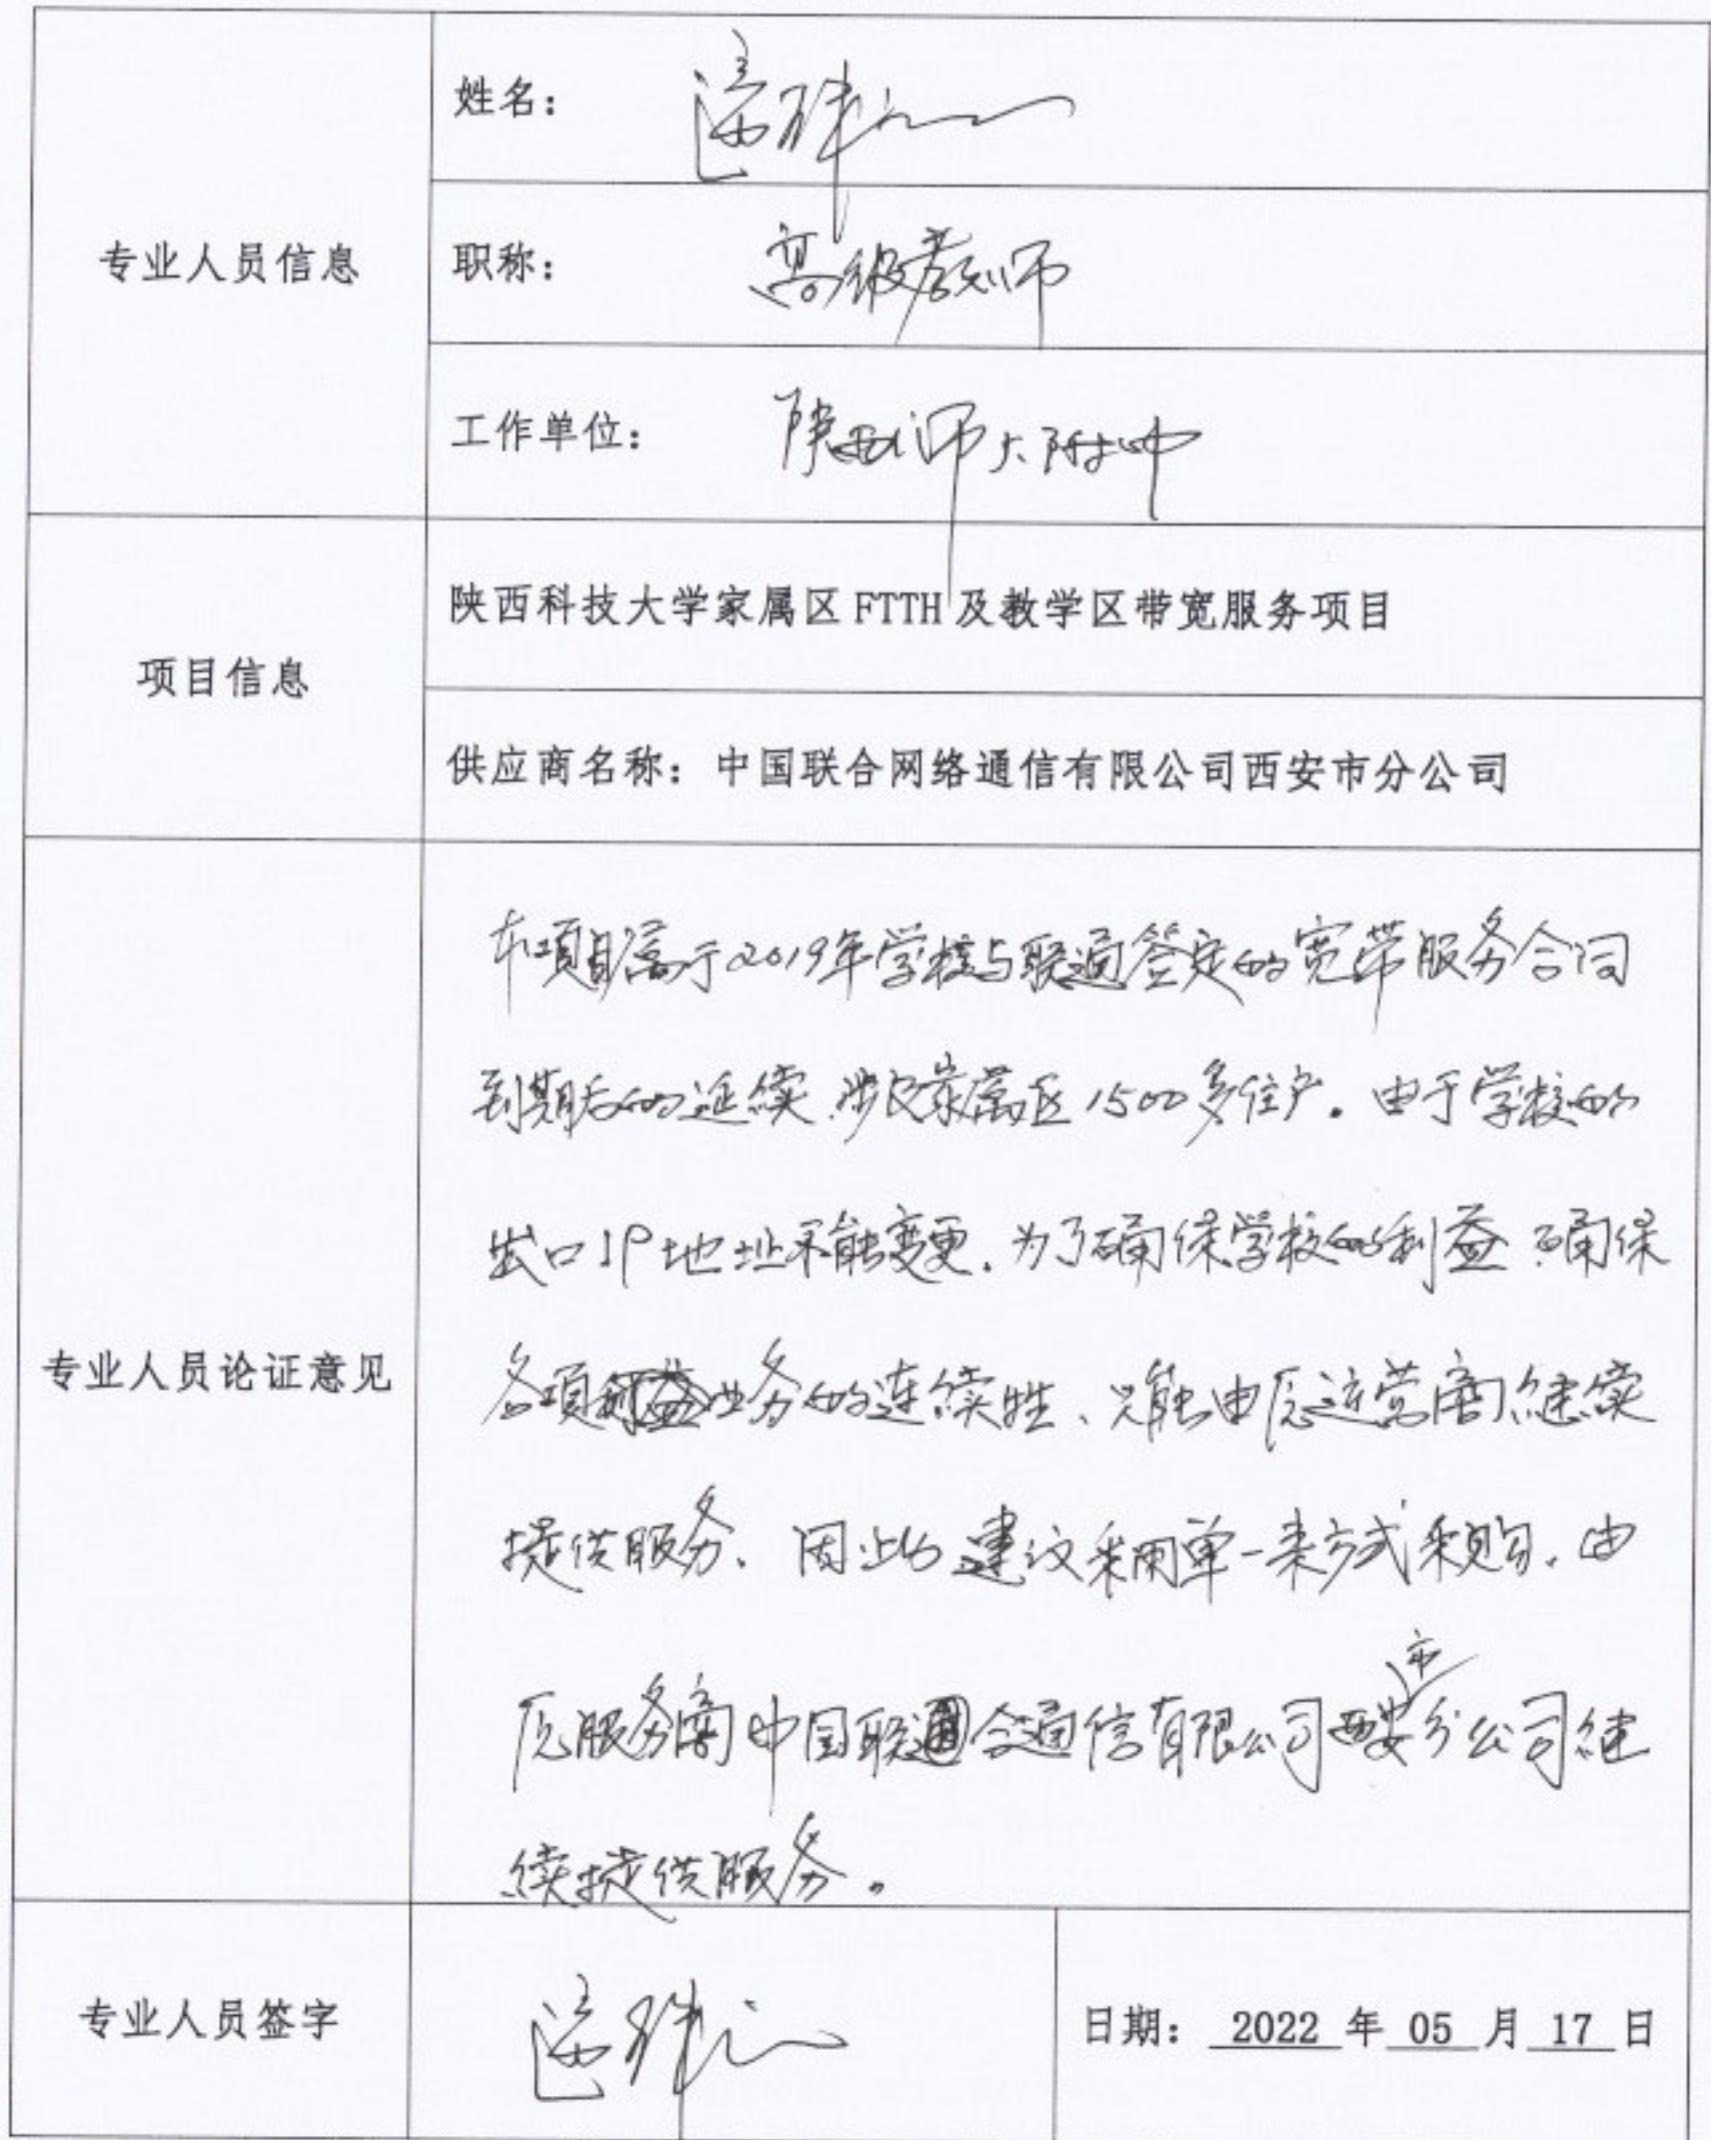 专业人员信息
姓名：
职称：高级教师
工作单位：陕西师大附中
项目信息
陕西科技大学家属区FTTH及教学区带宽服务项目
供应商名称：中国联合网络通信有限公司西安市分公司
专业人员论证意见
本项目属于2019年学校与联通签定的宽带服务合同
到期后的延续.涉及家属区1500多住户。由于学校的
出口IP地址不能变更.为了确保学校的利益.确保
各项业务的连续性、只能由原运营商继续
提供服务.因此建议采用单一来方式采购.由
原服务商中国联合通信有限公司西安市分公司继
续提供服务。
专业人员签字
日期：2022年05月17日